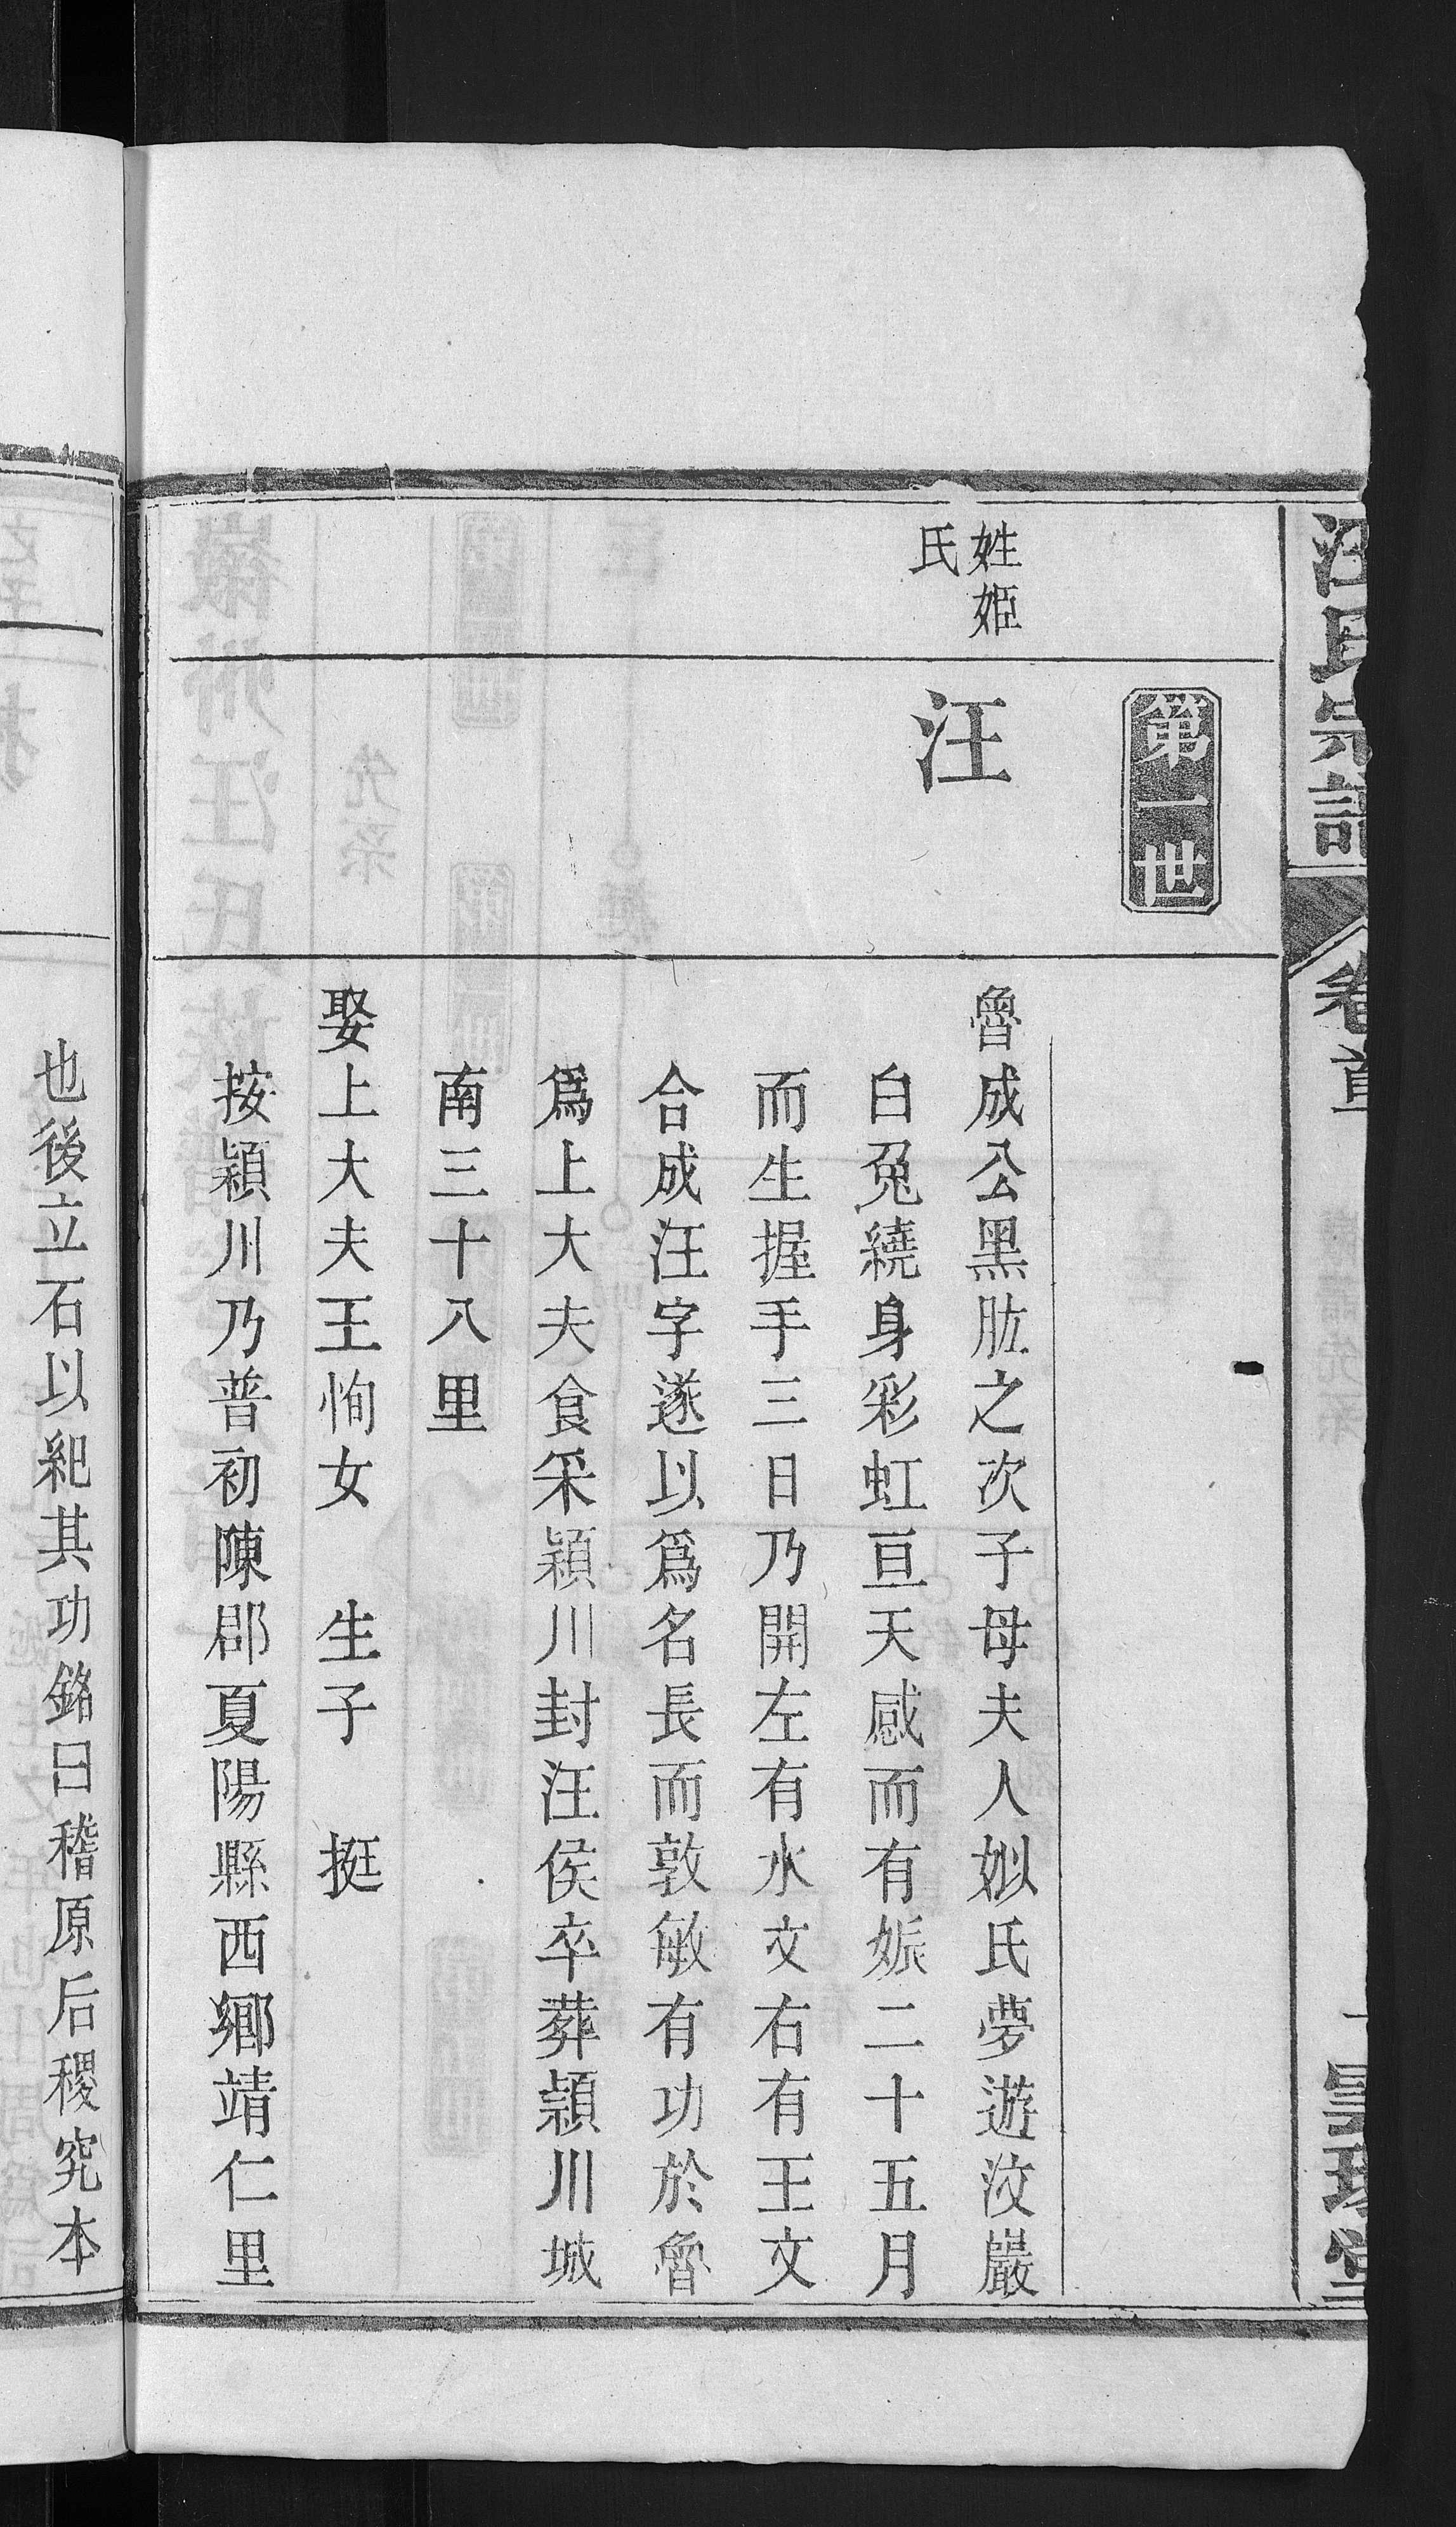 汪氏宗譜
卷首
一
第一世
姓姬
氏
汪
魯成公黑肱之次子母夫人姒氏夢遊汶巖
白兔繞身彩虹亘天感而有娠二十五月
而生握手三日乃開左有水文右有王文
合成汪字遂以爲名長而敦敏有功於魯
爲上大夫食采潁川封汪侯卒葬潁川城
南三十八里
娶上大夫王恂女 生子 挺
按潁川乃普初陳郡夏陽縣西鄉靖仁里
也後立石以紀其功銘曰稽原后稷究本